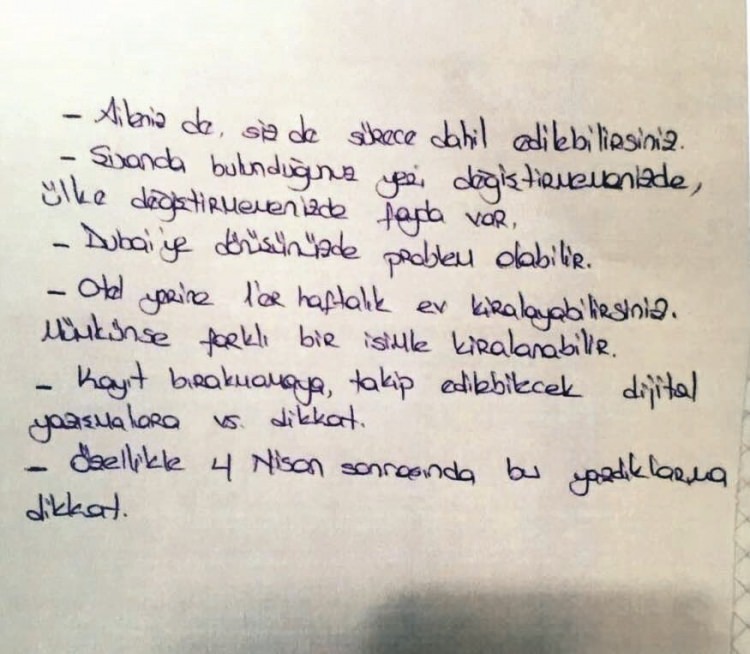 - Aileniz de, siz de sürece dahil edilebilirsiniz.
- Şuanda bulunduğunuz yeri değiştirmemenizde,
ülke değiştirmemenizde fayda var.
- Dubai'ye dönüşünüzde problem olabilir.
- Otel yerine 1'er haftalık ev kiralayabilirsiniz.
Mümkünse farklı bir isimle kiralanabilir.
- Kayıt bırakmamaya, takip edilebilecek dijital
yazışmalara vs. dikkat.
- Özellikle 4 Nisan sonrasında bu yazdıklarıma
dikkat.